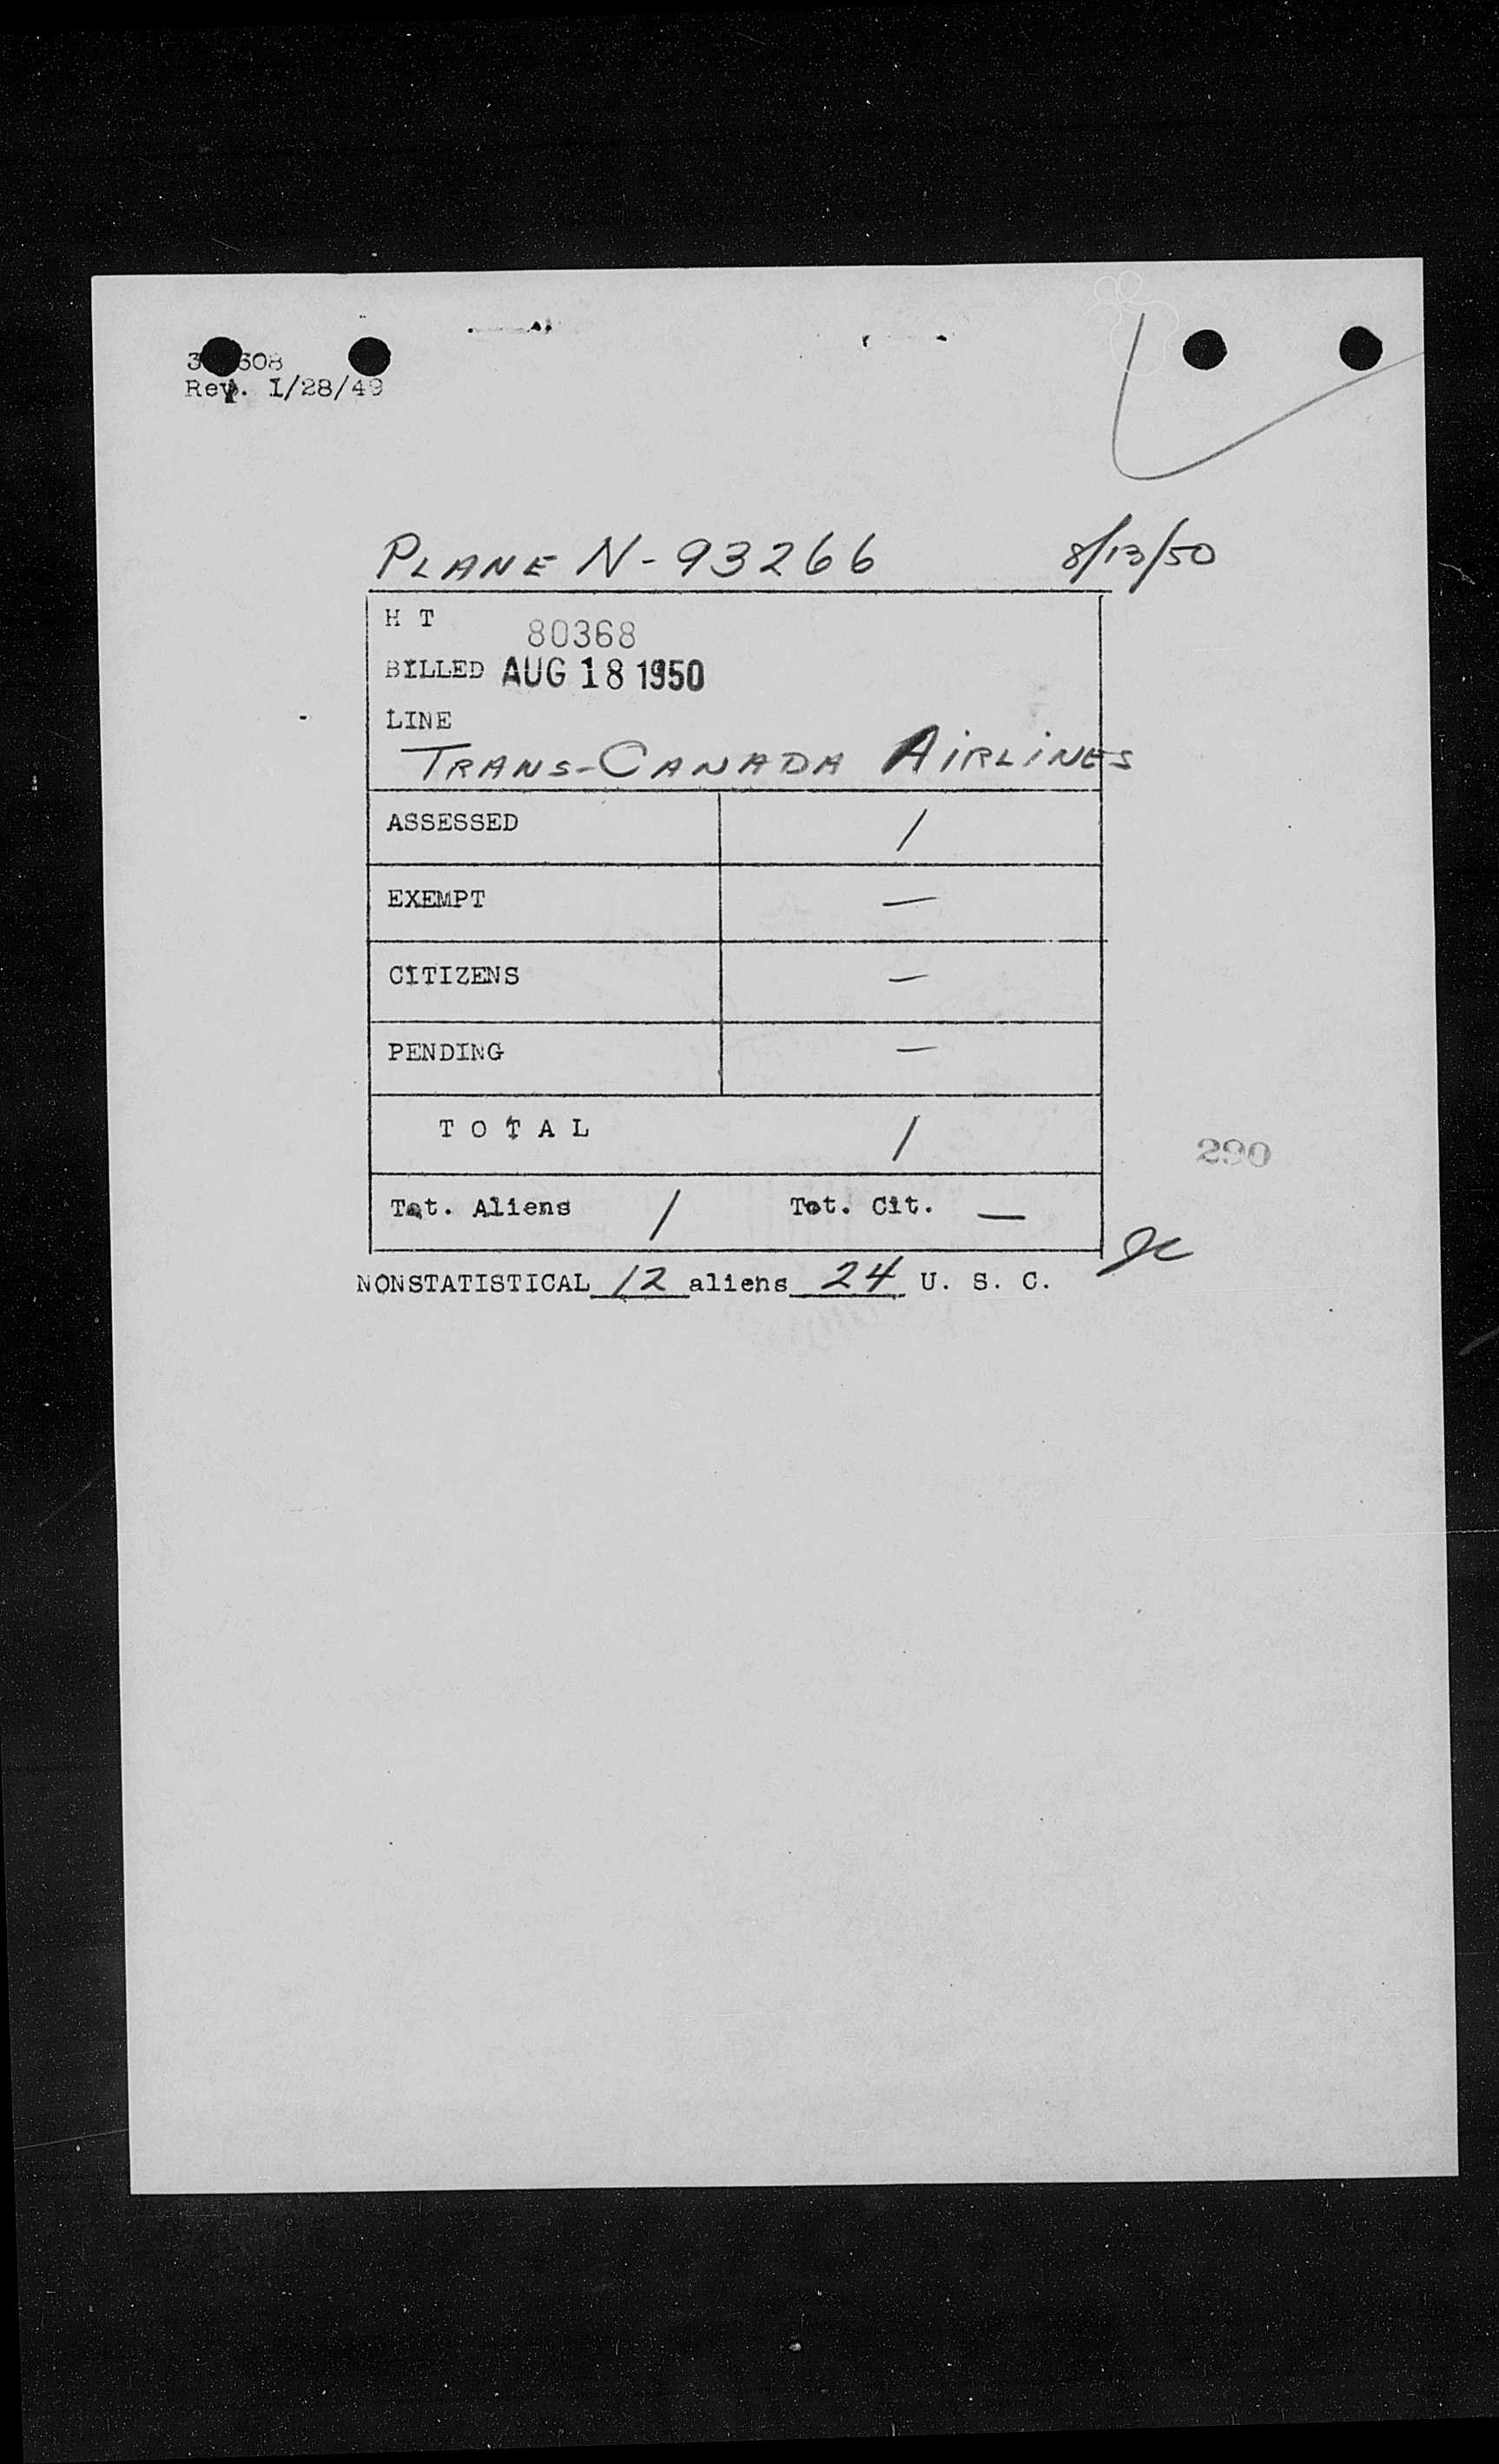 Rev. 1/28/49
PLANE N-93266 8/13/50
H T 80368
BILLED AUG 18 1950
LINE
TRANS-CANADA AIRLINES
ASSESSED 1
EXEMPT —
CITIZENS —
PENDING —
T O T A L 1
290
Tot. Aliens 1 Tot. Cit. —
NONSTATISTICAL 12 aliens 24 U. S. C.